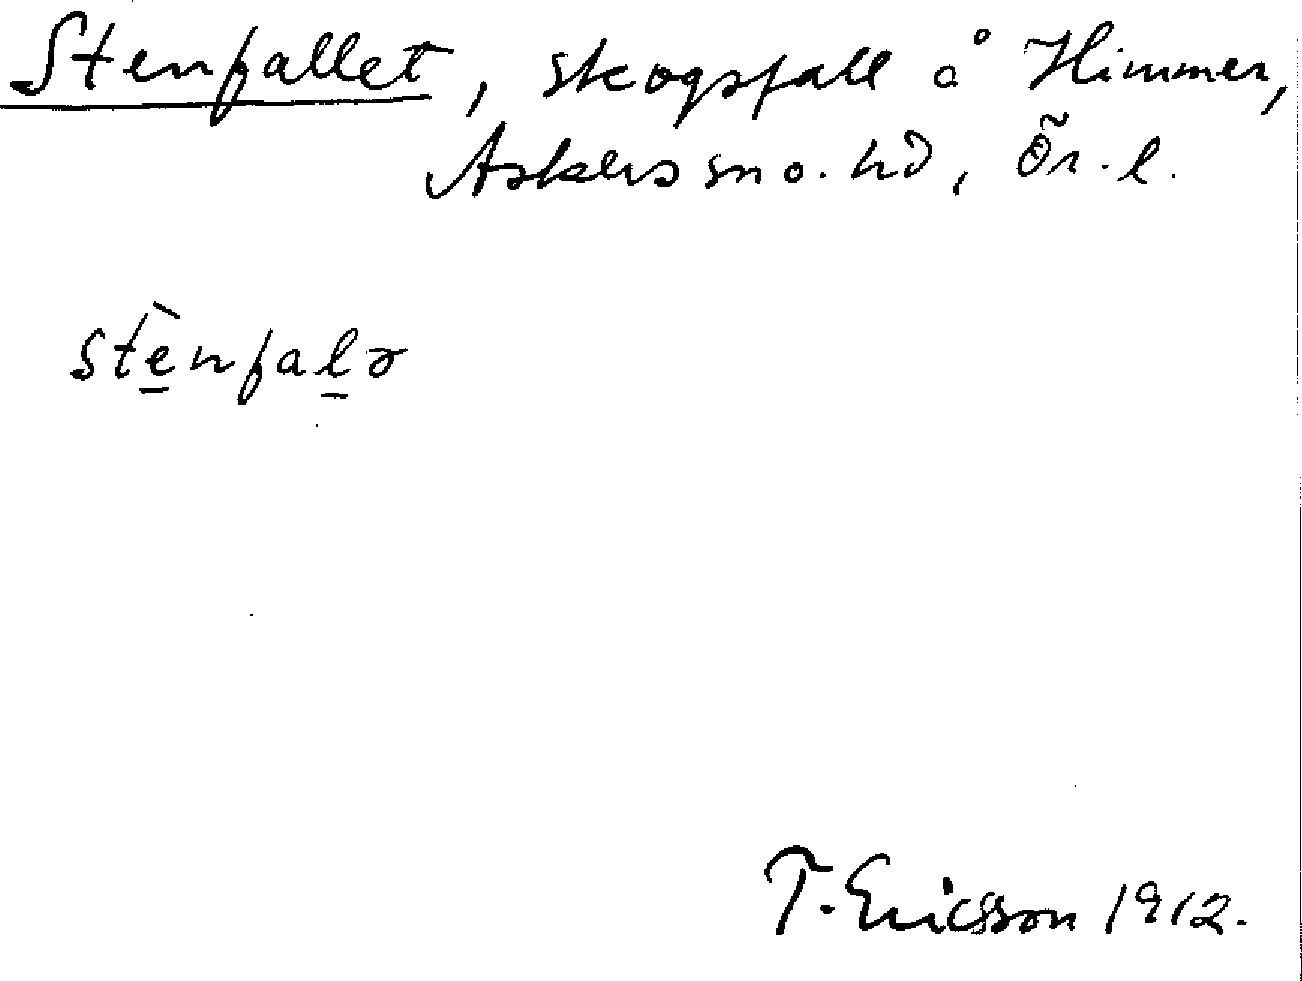 Stenfallet, skogsfall å Himmer,
Askers sn o. hd, Ör. l.
stènfalə
T. Ericsson 1912.